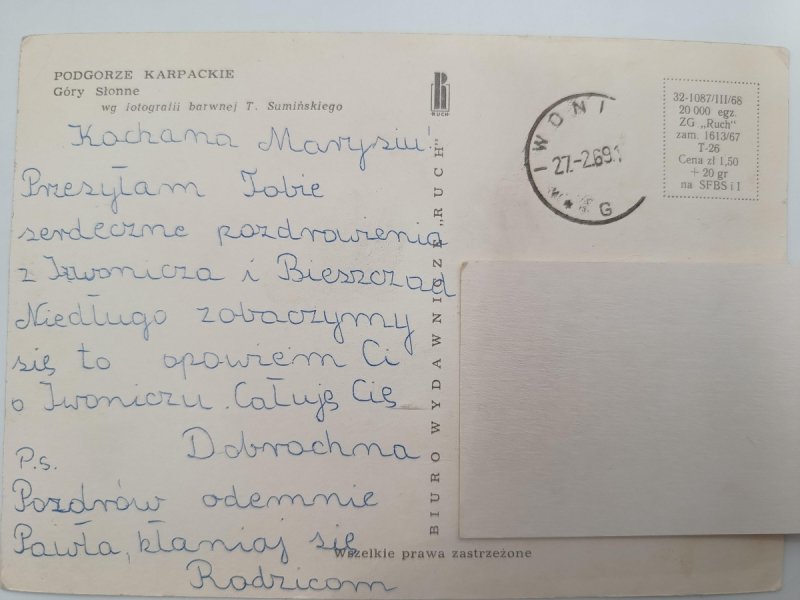 PODGORZE KARPACKIE
Góry Słonne
wg fotografii barwnej T. Sumińskiego
RUCH
32-1087/III/68
20 000 egz.
ZG „Ruch"
zam. 1613/67
T-26
Cena zł 1,50
+ 20 gr
na SFBS i I
IWONI
27.-2.69.1
G
Kochana Marysiu!
Przesyłam Tobie
serdeczne pozdrowienia
z Iwonicza i Bieszczad
Niedługo zobaczymy
się to opowiem Ci
o Iwoniczu. Całuję Cię
Dobrochna
P.s.
Pozdrów odemnie
Pawła, kłaniaj się
Rodzicom
BIURO WYDAWNICZE „RUCH"
Wszelkie prawa zastrzeżone